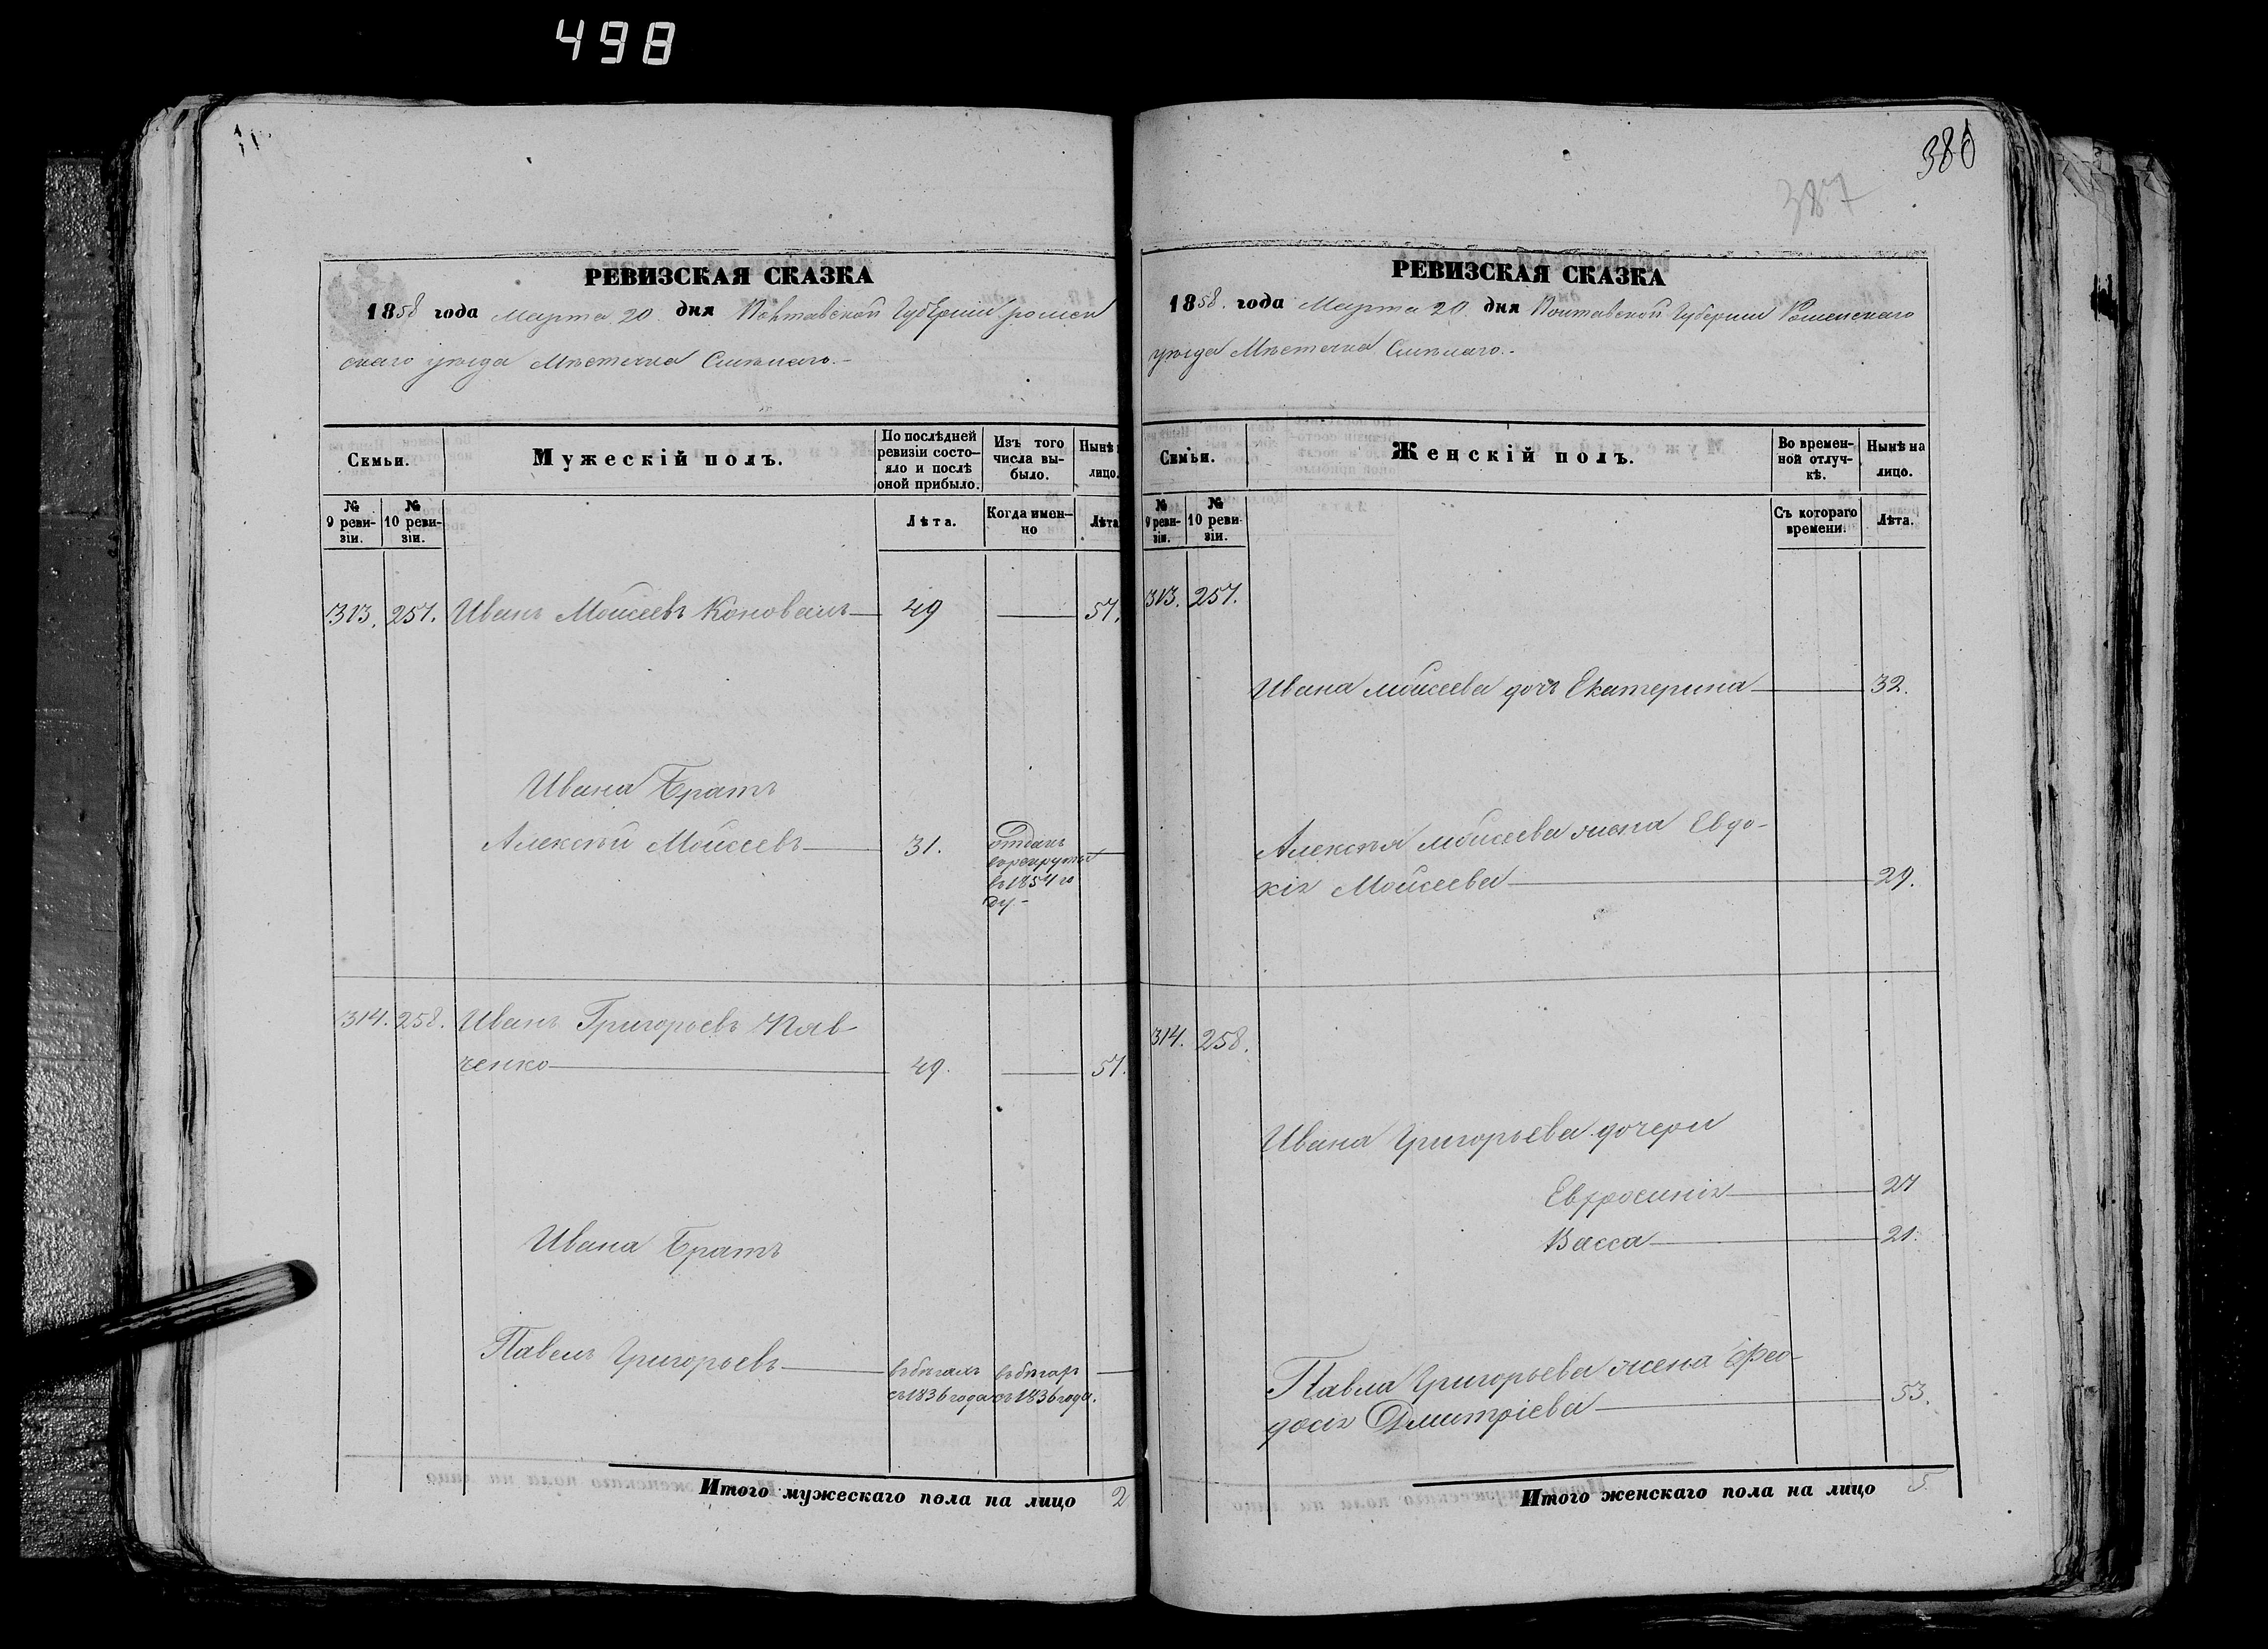 498
380
387
РЕВИЗСКАЯ СКАЗКА
1858 года Марта 20 дня Полтавской Губернии Ромен
скаго уѣзда Мѣстечка Смѣлаго.-
Семьи.
Мужескій полъ.
По послѣдней ревизіи состо-
яло и послѣ оной прибыло.
Изъ того числа вы-
было.
Нынѣ
лицо.
№ 9 реви-
зіи.
№ 10 реви-
зіи.
Лѣта.
Когда имен-
но
Лѣта
313. 257. Иванъ Моисеевъ Коновалъ 49 57.
Ивана Братъ
Алексѣй Моисеевъ 31. отданъ
въ рекруты
въ 1854 го
ду-
314. 258. Иванъ Григорьевъ
ченко 49. 57.
Ивана Братъ
Павелъ Григорьевъ въ бѣгахъ въ бѣгах
съ 1836 года съ 1836 года.
Итого мужескаго пола на лицо 2
РЕВИЗСКАЯ СКАЗКА
1858. года Марта 20. дня Полтавской Губернии Роменскаго
уѣзда Мѣстечка Смѣлаго.-
Семьи.
Женскій полъ.
Во времен-
ной отлуч-
кѣ.
Нынѣ на
лицо.
№ 9 реви-
зіи.
№ 10 реви-
зіи.
Съ котораго
времени.
Лѣта.
313. 257.
Ивана Моисеева дочь Екатерина 32.
Алексѣя Моисеева жена Евдо-
кія Моисеева 29.
314. 258.
Ивана Григорьева дочери
Евфросинія 27
Васса 21.
Павла Григорьева жена Фео-
досія Дмитріева 53.
Итого женскаго пола на лицо 5